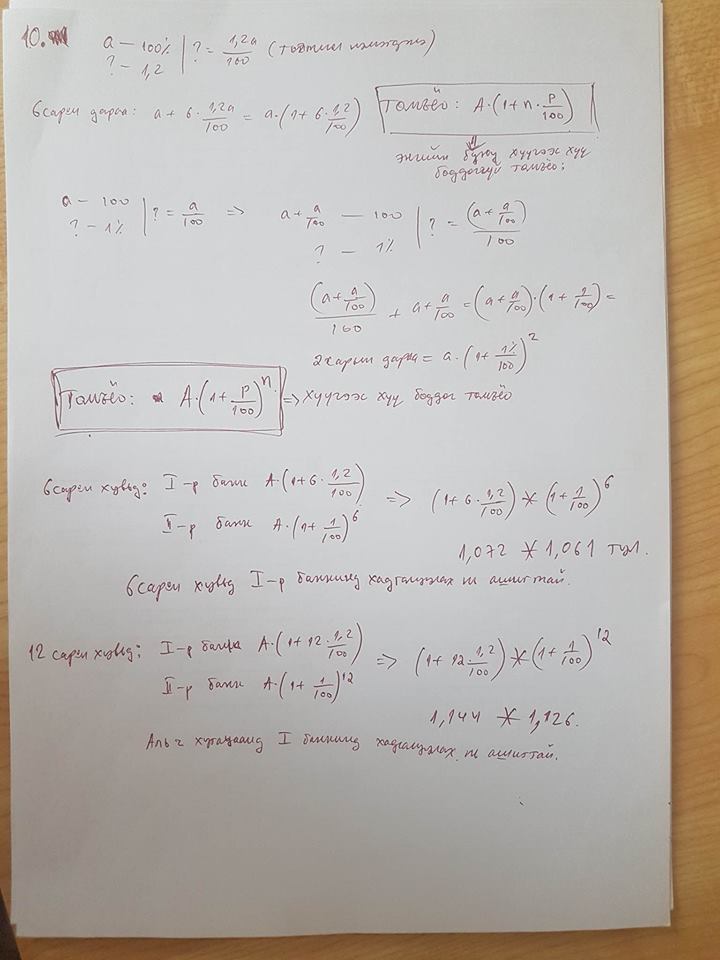 10. a — 100% | ? = 1,2a/100 (тогтмол нэмэгдэнэ)
? — 1,2
6 сарын дараа: a + 6 · 1,2a/100 = a · (1 + 6 · 1,2/100)
Томъёо: A · (1 + n · P/100)
энгийн буюу хүүгээс хүү
боддоггүй томъёо:
a — 100 | ? = a/100 => a + a/100 — 100 | ? = (a + a/100)/100
? — 1% ? — 1%
(a + a/100)/100 + a + a/100 = (a + a/100) · (1 + 1/100) =
2 сарын дараа = a · (1 + 1%/100)^2
Томъёо: A · (1 + P/100)^n => хүүгээс хүү боддог томъёо
6 сарын хувьд: I-р банк A · (1 + 6 · 1,2/100) => (1 + 6 · 1,2/100) * (1 + 1/100)^6
II-р банк A · (1 + 1/100)^6
1,072 * 1,061 тул.
6 сарын хувьд I-р банкинд хадгалуулах нь ашигтай.
12 сарын хувьд: I-р банк A · (1 + 12 · 1,2/100) => (1 + 12 · 1,2/100) * (1 + 1/100)^12
II-р банк A · (1 + 1/100)^12
1,144 * 1,126.
Аль ч хугацаанд I банкинд хадгалуулах нь ашигтай.